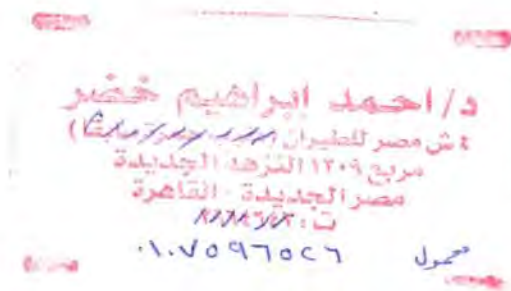 د/احمد ابراهيم خضر
٤ ش مصر للطيران
مربع ١٢٠٩ النزهة الجديدة
مصر الجديدة - القاهرة
ت:
محمول ٠١٠٧٥٩٦٥٢٦